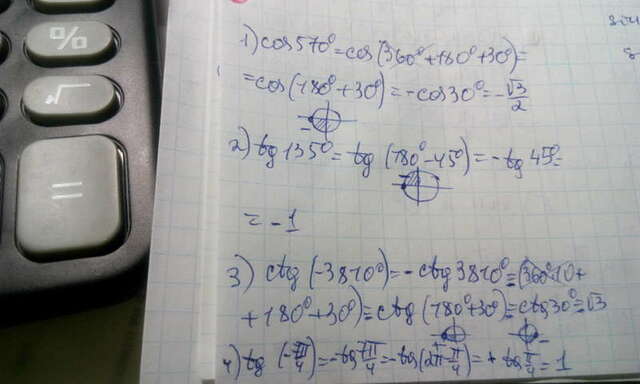 %
√
=
1) cos 570° = cos (360° + 180° + 30°) =
= cos (180° + 30°) = - cos 30° = - √3/2
2) tg 135° = tg (180° - 45°) = - tg 45° =
= - 1
3) ctg (-3810°) = - ctg 3810° = (360°·10 +
+ 180° + 30°) = ctg (180° + 30°) = ctg 30° = √3
4) tg (-7π/4) = - tg 7π/4 = - tg (2π - π/4) = + tg π/4 = 1